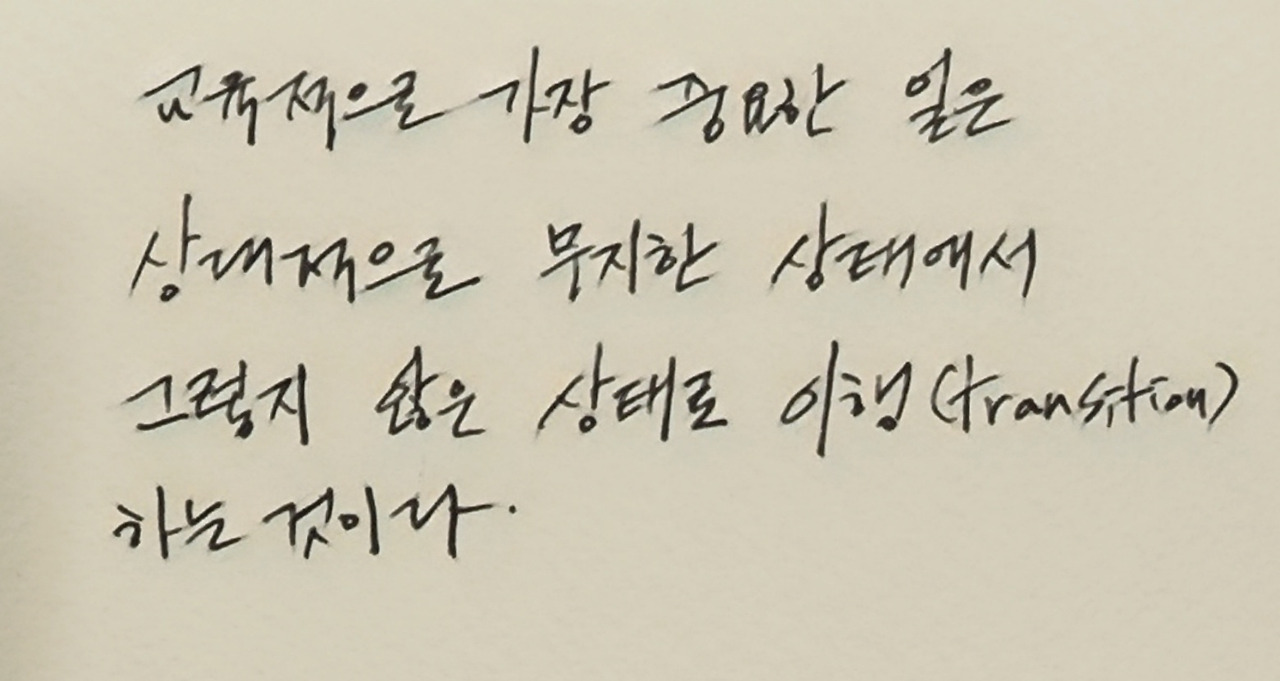 교육적으로 가장 중요한 일은
상대적으로 무지한 상태에서
그렇지 않은 상태로 이행(transition)
하는 것이다.